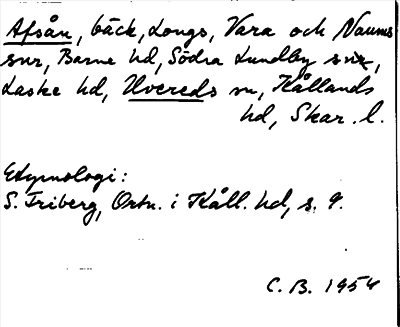 Afsån, bäck, Longs, Vara och Naums
snr, Barne hd, Södra Lundby sn,
Laske hd, Uvereds sn, Kållands
hd, Skar. l.
Etymologi:
S. Friberg, Ortn. i Kåll. hd, s. 9.
C. B. 1954